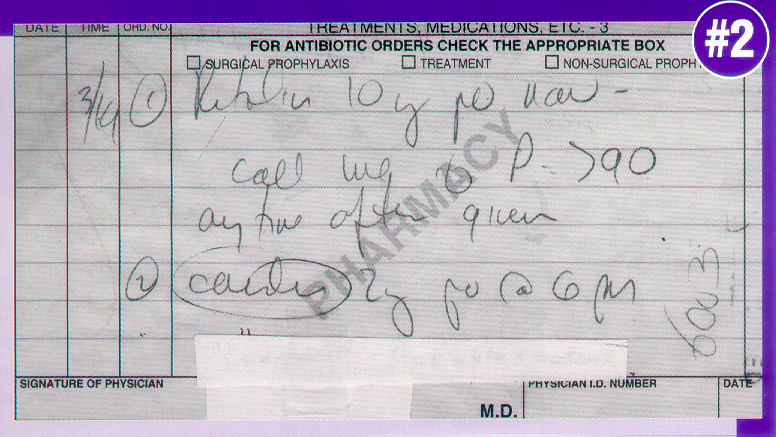 #2
DATE TIME ORD. NO. TREATMENTS, MEDICATIONS, ETC. - 3
FOR ANTIBIOTIC ORDERS CHECK THE APPROPRIATE BOX
SURGICAL PROPHYLAXIS TREATMENT NON-SURGICAL PROPH
3/19 ① Ritalin 10 po now -
call me P >90
anytime after given
② po @ 6 pm
PHARMACY
SIGNATURE OF PHYSICIAN PHYSICIAN I.D. NUMBER DATE
M.D.